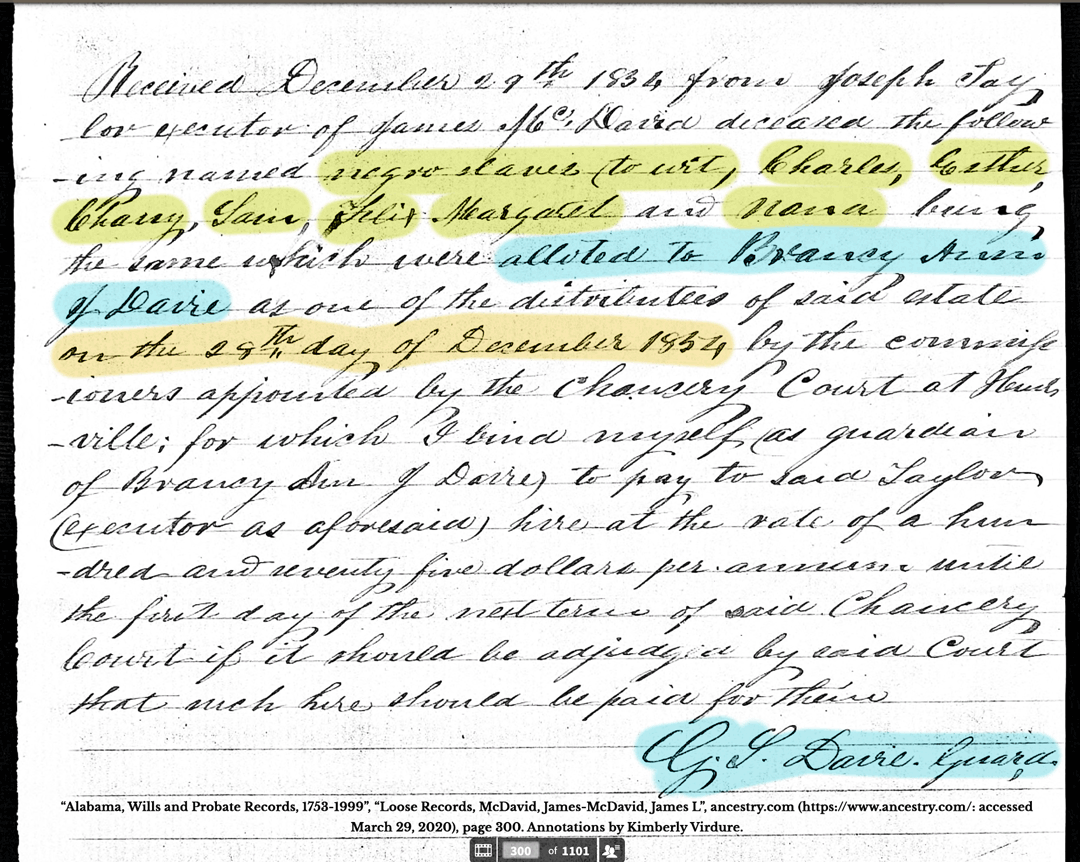 Received December 29th 1854 from Joseph Tay
lor executor of James McDavid deceased the follow
-ing named negro slaves (to wit, Charles, Esther,
Chany, Sam, Felix Margaret and Nana being
the same which were alloted to Brancy Ann
J Davie as one of the distributees of said estate
on the 28th day of December 1854 by the commiss
-ioners appointed by the Chancery Court at Hunts
-ville; for which I bind myself (as guardian
of Brancy Ann J Davie) to pay to said Taylor
(executor as aforesaid) hire at the rate of a hun
-dred and seventy five dollars per annum until
the first day of the next term of said Chancery
Court if it should be adjudged by said Court
that such hire should be paid for them
G. S. Davie. Guard.
“Alabama, Wills and Probate Records, 1753-1999”, “Loose Records, McDavid, James-McDavid, James L”, ancestry.com (https://www.ancestry.com/: accessed
March 29, 2020), page 300. Annotations by Kimberly Virdure.
300 of 1101